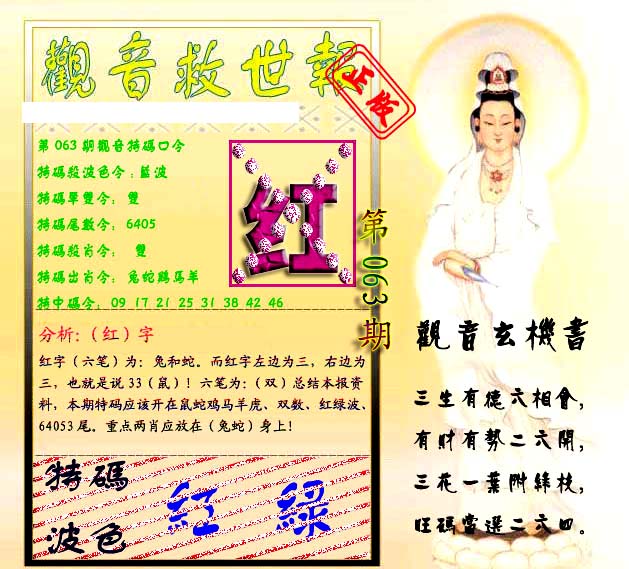 觀音救世報
正版
第 063 期觀音特碼口令
特碼殺波色令：藍波
特碼單雙令： 雙
特碼尾數令： 6405
特碼殺肖令： 雙
特碼出肖令： 兔蛇鷄馬羊
特中碼令： 09 17 21 25 31 38 42 46
红
第 063 期
分析：（红）字
红字（六笔）为：兔和蛇。而红字左边为三，右边为
三，也就是说 33（鼠）！六笔为：（双）总结本报资
料，本期特码应该开在鼠蛇鸡马羊虎、双数、红绿波、
64053 尾。重点两肖应放在（兔蛇）身上！
特碼
波色
紅 綠
觀音玄機書
三生有德六相會，
有財有勢二六開，
三花一葉附綠枝，
旺碼當選二六四。